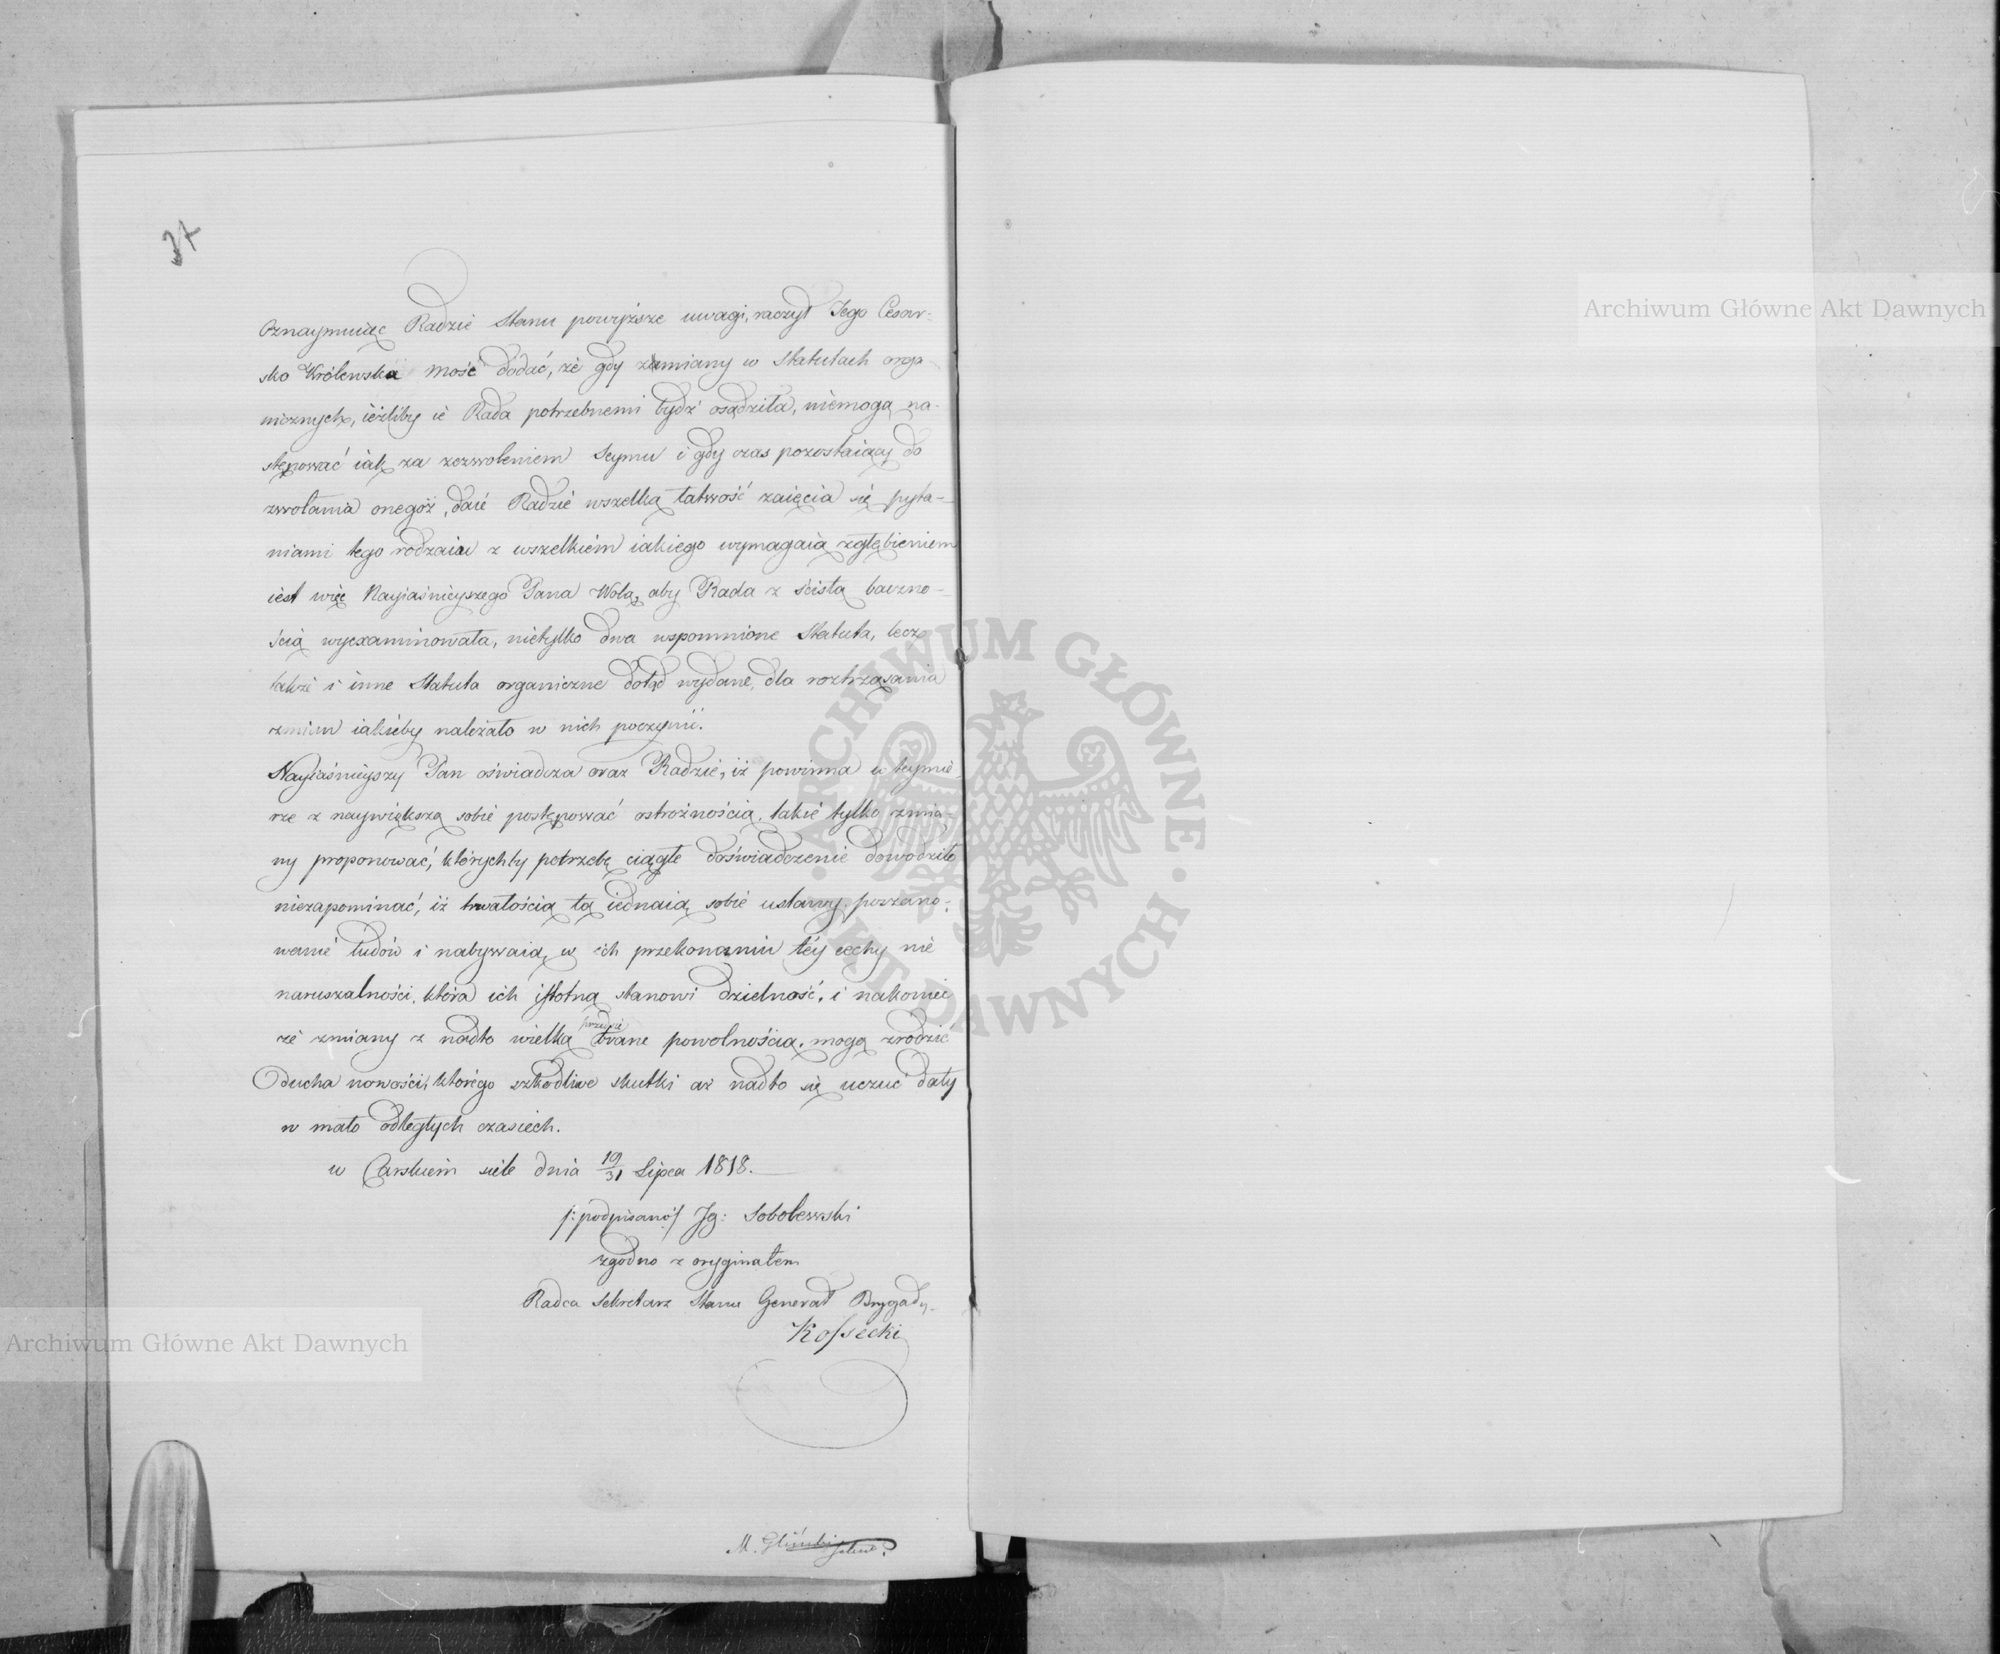 37
Oznaymuiąc Radzie Stanu powyższe uwagi, raczył Jego Cesar-
sko Królewska Mość dodać, że gdy zamiany w Statutach orga-
nicznych, ieżliby ie Rada potrzebnemi bydź osądziła, niemogą na-
stępować iak za zezwoleniem Seymu i gdy czas pozostaiący do
zwołania onegoż, daie Radzie wszelką łatwość zaięcia się pyta-
niami tego rodzaiu z wszelkiém iakiego wymagaią zgłębieniem
iest więc Nayiaśnieyszego Pana Wolą, aby Rada z ścisłą baczno-
ścią wyexaminowała, nietylko dwa wspomnione Statuta, lecz
także i inne Statuta organiczne dotąd wydane, dla roztrząsania
zmian iakieby należało w nich poczynić.
Nayiaśnieyszy Pan oświadcza oraz Radzie, iż powinna w teymie
rze z naywiększą sobie postępować ostrożnością, takie tylko zmia-
ny proponować, którychby potrzebę ciągłe doświadczenie dowodziło
niezapominać, iż trwałością tą iednaią sobie ustawy, poszano-
wanie ludów i nabywaią w ich przekonaniu téy cechy nie
naruszalności, która ich istotną stanowi dzielność, i nakoniec
że zmiany z nadto wielką brane powolnością, mogą zrodzić
Ducha nowości, którego szkodliwe skutki aż nadto się uczuć dały
w mało odległych czasiech.
w Carskiem siele dnia 19/31 Lipca 1818.
/: podpisano :/ Ig: Sobolewski
zgodno z oryginałem
Radca Sekretarz Stanu Generał Brygady
Kossecki
M. Gliński
Archiwum Główne Akt Dawnych
Archiwum Główne Akt Dawnych
ARCHIWUM GŁÓWNE AKT DAWNYCH